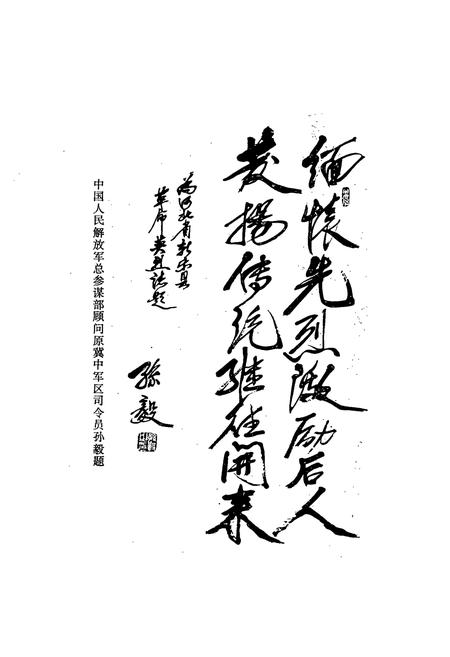 缅怀先烈激励后人
发扬传统继往开来
为河北省新乐县
革命英烈志题
孙毅
中国人民解放军总参谋部顾问原冀中军区司令员孙毅题